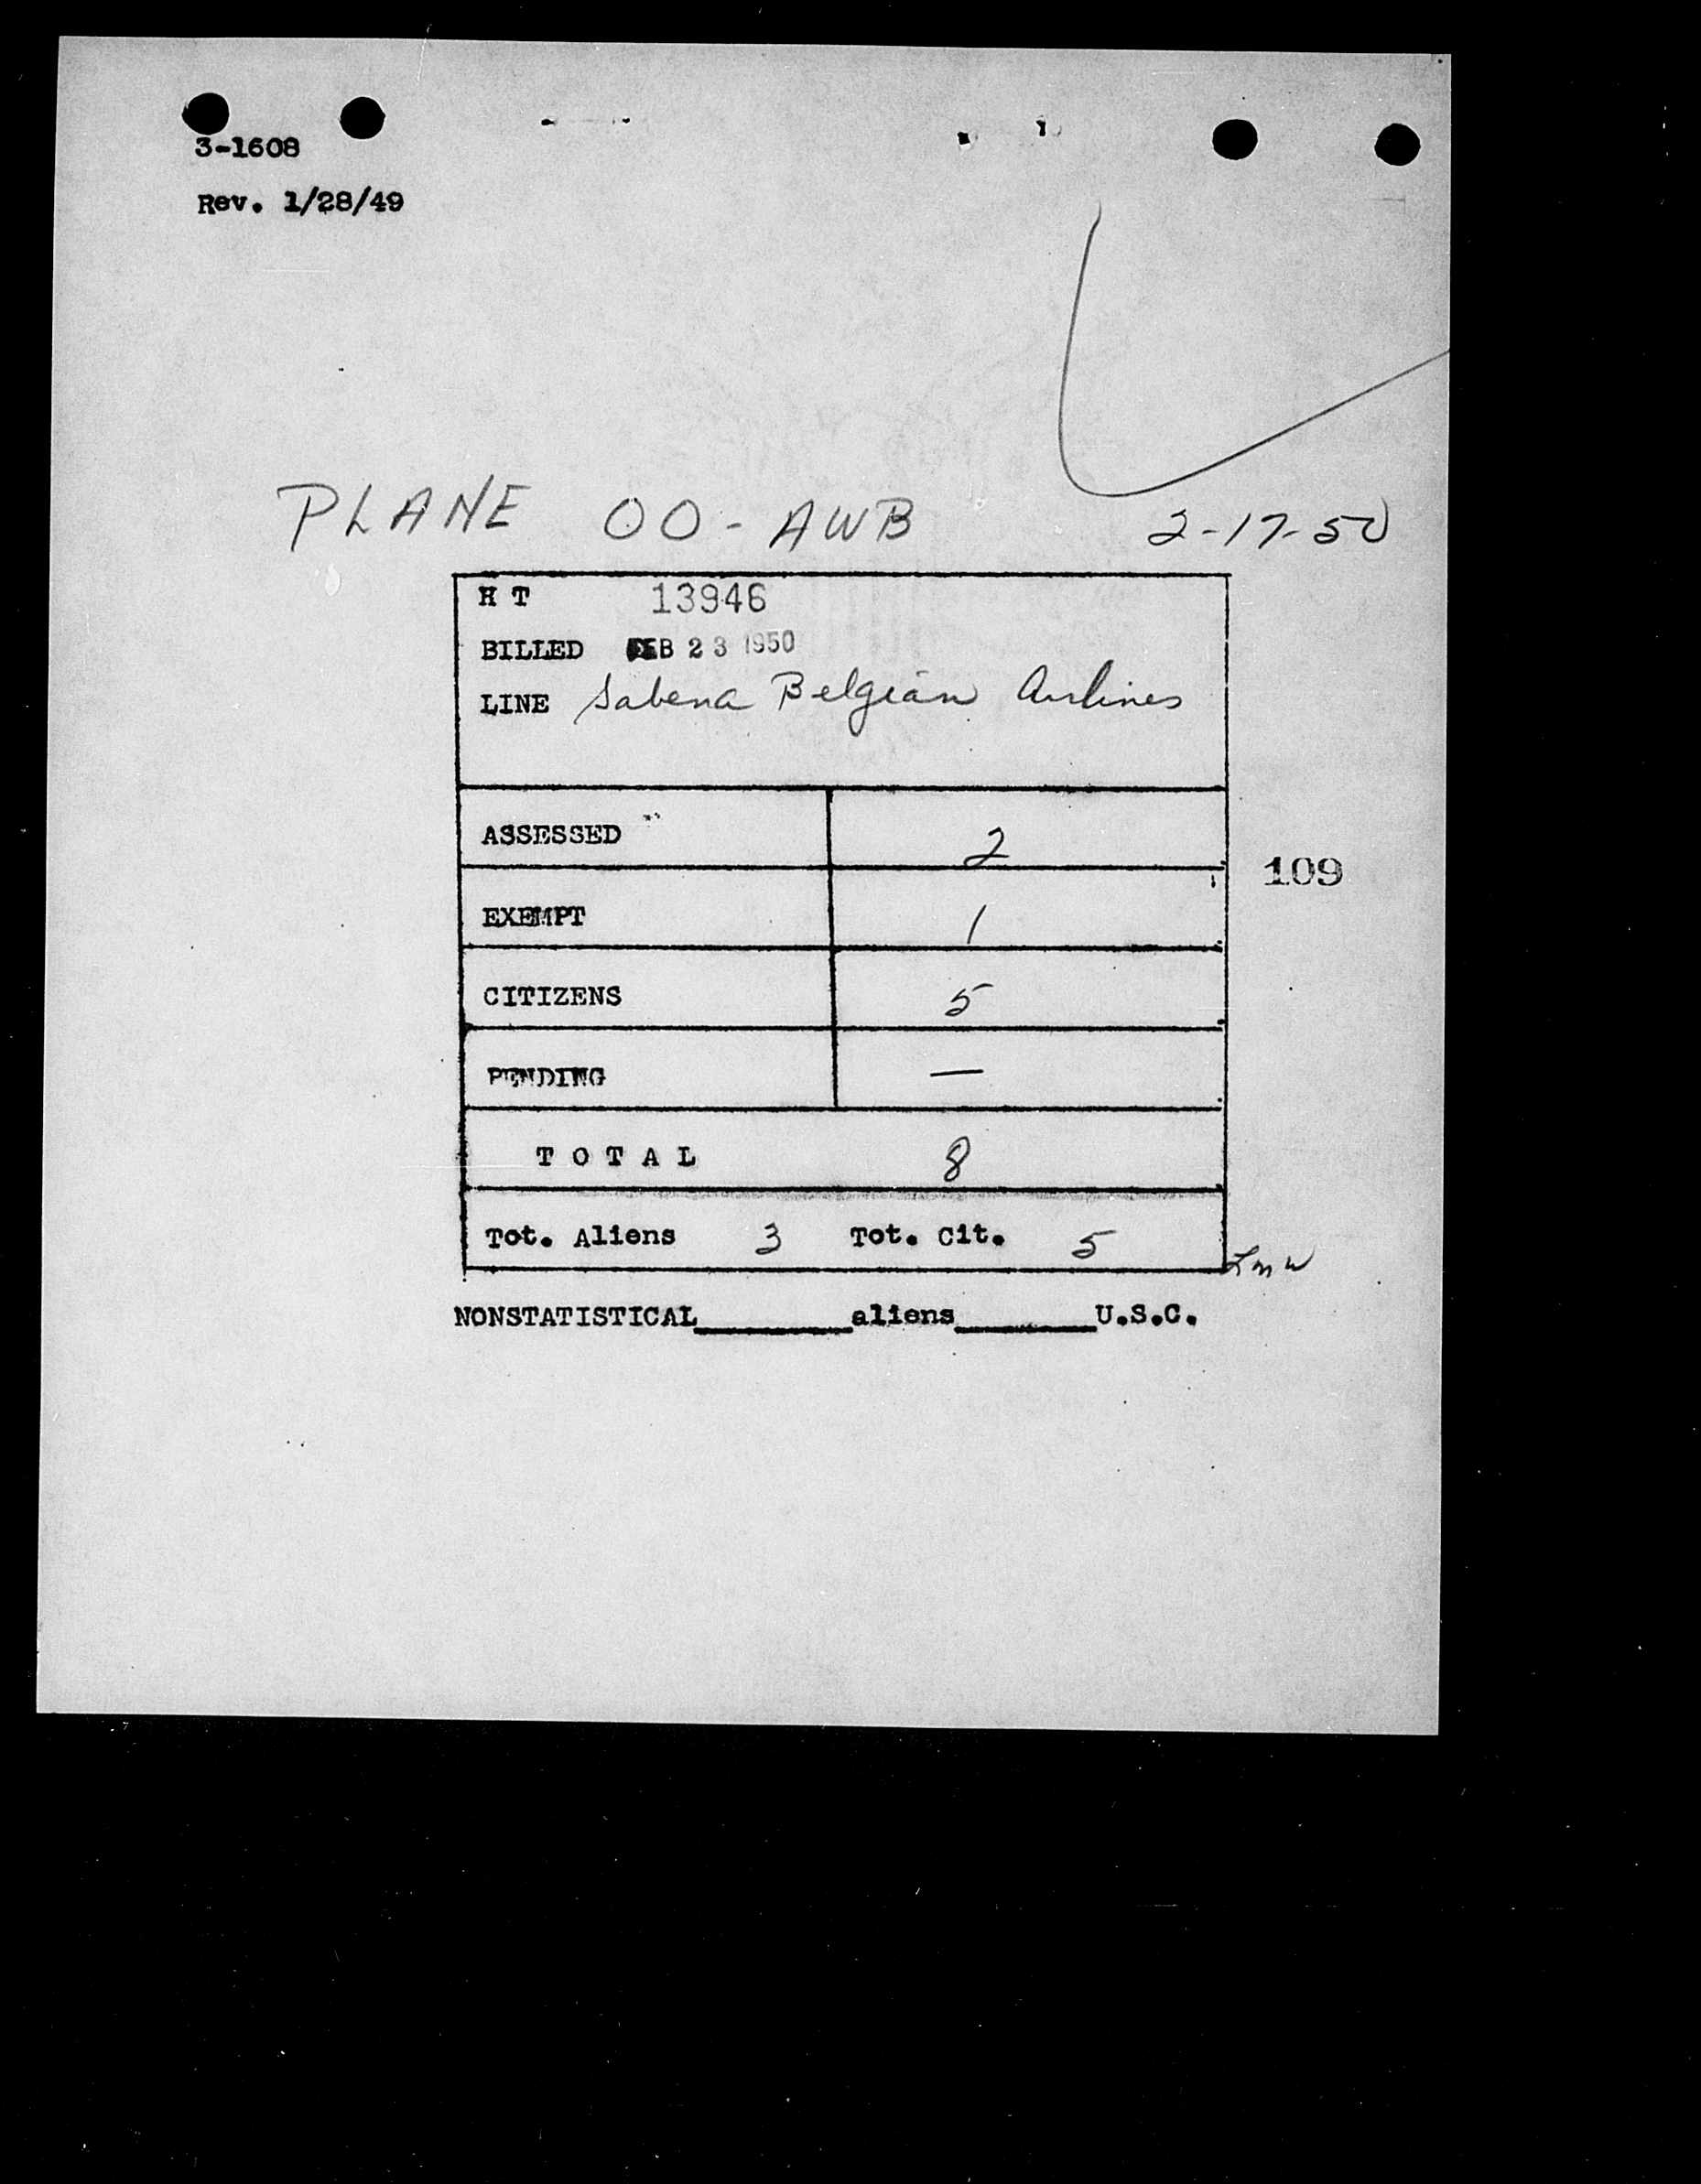 3-1608
Rev. 1/28/49
PLANE OO-AWB 2-17-50
H T 13946
BILLED FEB 23 1950
LINE Sabena Belgian Airlines
ASSESSED 2
109
EXEMPT 1
CITIZENS 5
PENDING —
TOTAL 8
Tot. Aliens 3 Tot. Cit. 5
NONSTATISTICAL________aliens_______U.S.C.